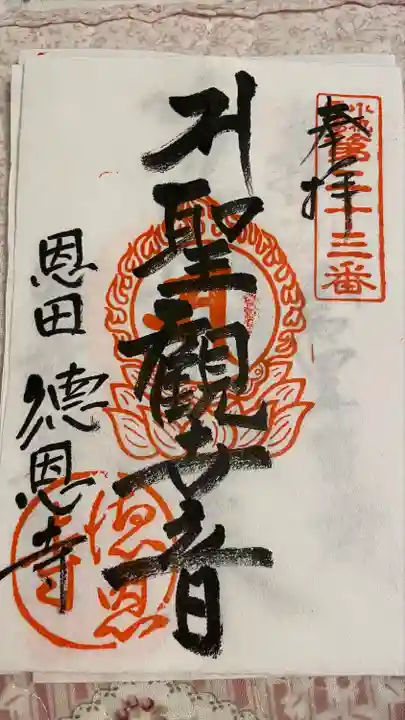 奉拝
第三十三番
聖観世音
恩田 徳恩寺
徳恩寺